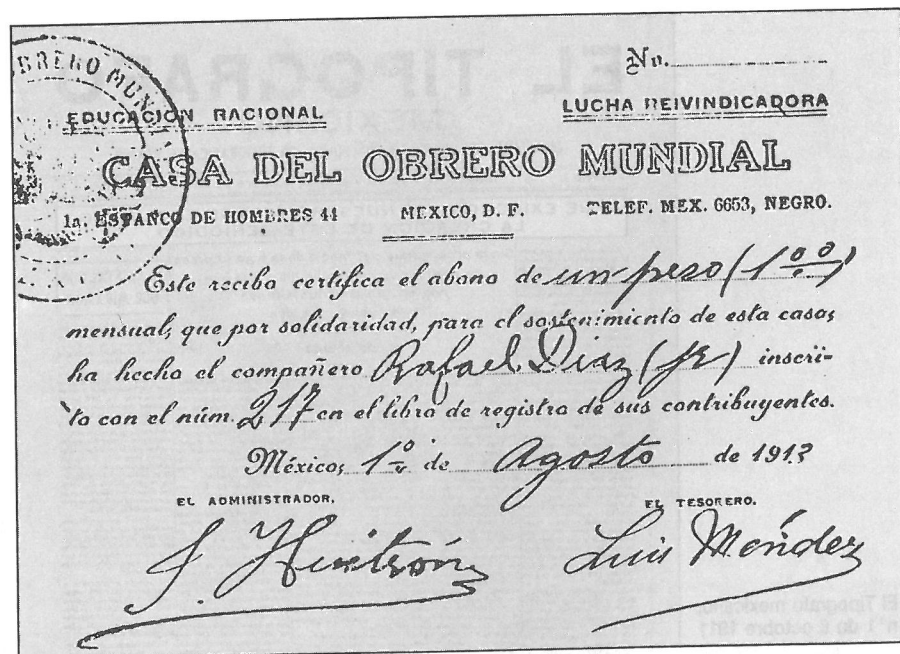 OBRERO MUN
No.
EDUCACION RACIONAL
LUCHA REIVINDICADORA
CASA DEL OBRERO MUNDIAL
1a. ESTANCO DE HOMBRES 44 MEXICO, D. F. TELEF. MEX. 6653, NEGRO.
Este recibo certifica el abono de un peso (1.00)
mensual, que por solidaridad, para el sostenimiento de esta casa,
ha hecho el compañero Rafael Diaz (jr) inscri-
to con el núm. 217 en el libro de registro de sus contribuyentes.
México, 1º de Agosto de 1913
EL ADMINISTRADOR.
EL TESORERO.
J. Huitrón
Luis Méndez
EL TIPOGRAFO
El Tipógrafo mexicano,